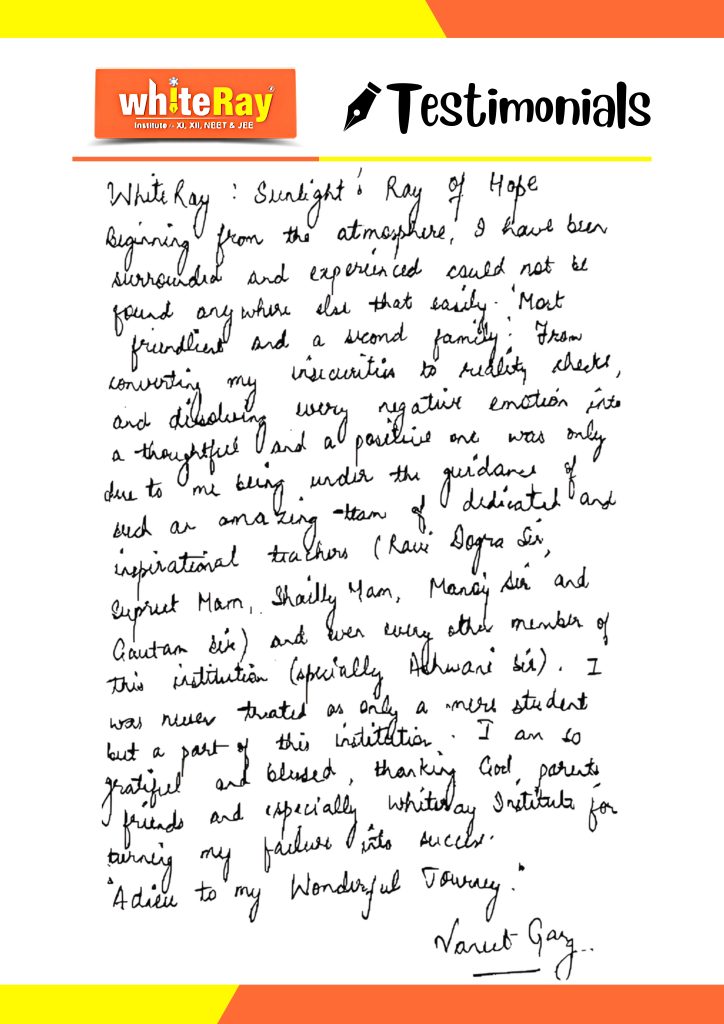 whiteRay
Institute :- XI, XII, NEET & JEE
Testimonials
White Ray : Sunlight's Ray of Hope
Beginning from the atmosphere, I have been
surrounded and experienced could not be
found anywhere else that easily. 'Most
friendliest and a second family.' From
converting my insecurities to reality checks,
and dissolving every negative emotion into
a thoughtful and a positive one was only
due to me being under the guidance of
such an amazing team of dedicated and
inspirational teachers (Ravi Dogra Sir,
Supreet Mam, Shailly Mam, Manoj Sir and
Gautam Sir) and even every other member of
this institution (specially Ashwani Sir). I
was never treated as only a mere student
but a part of this institution. I am so
grateful and blessed, thanking God, parents
friends and especially Whiteray Institute for
turning my failure into success.
"Adieu to my Wonderful Journey."
Garg..